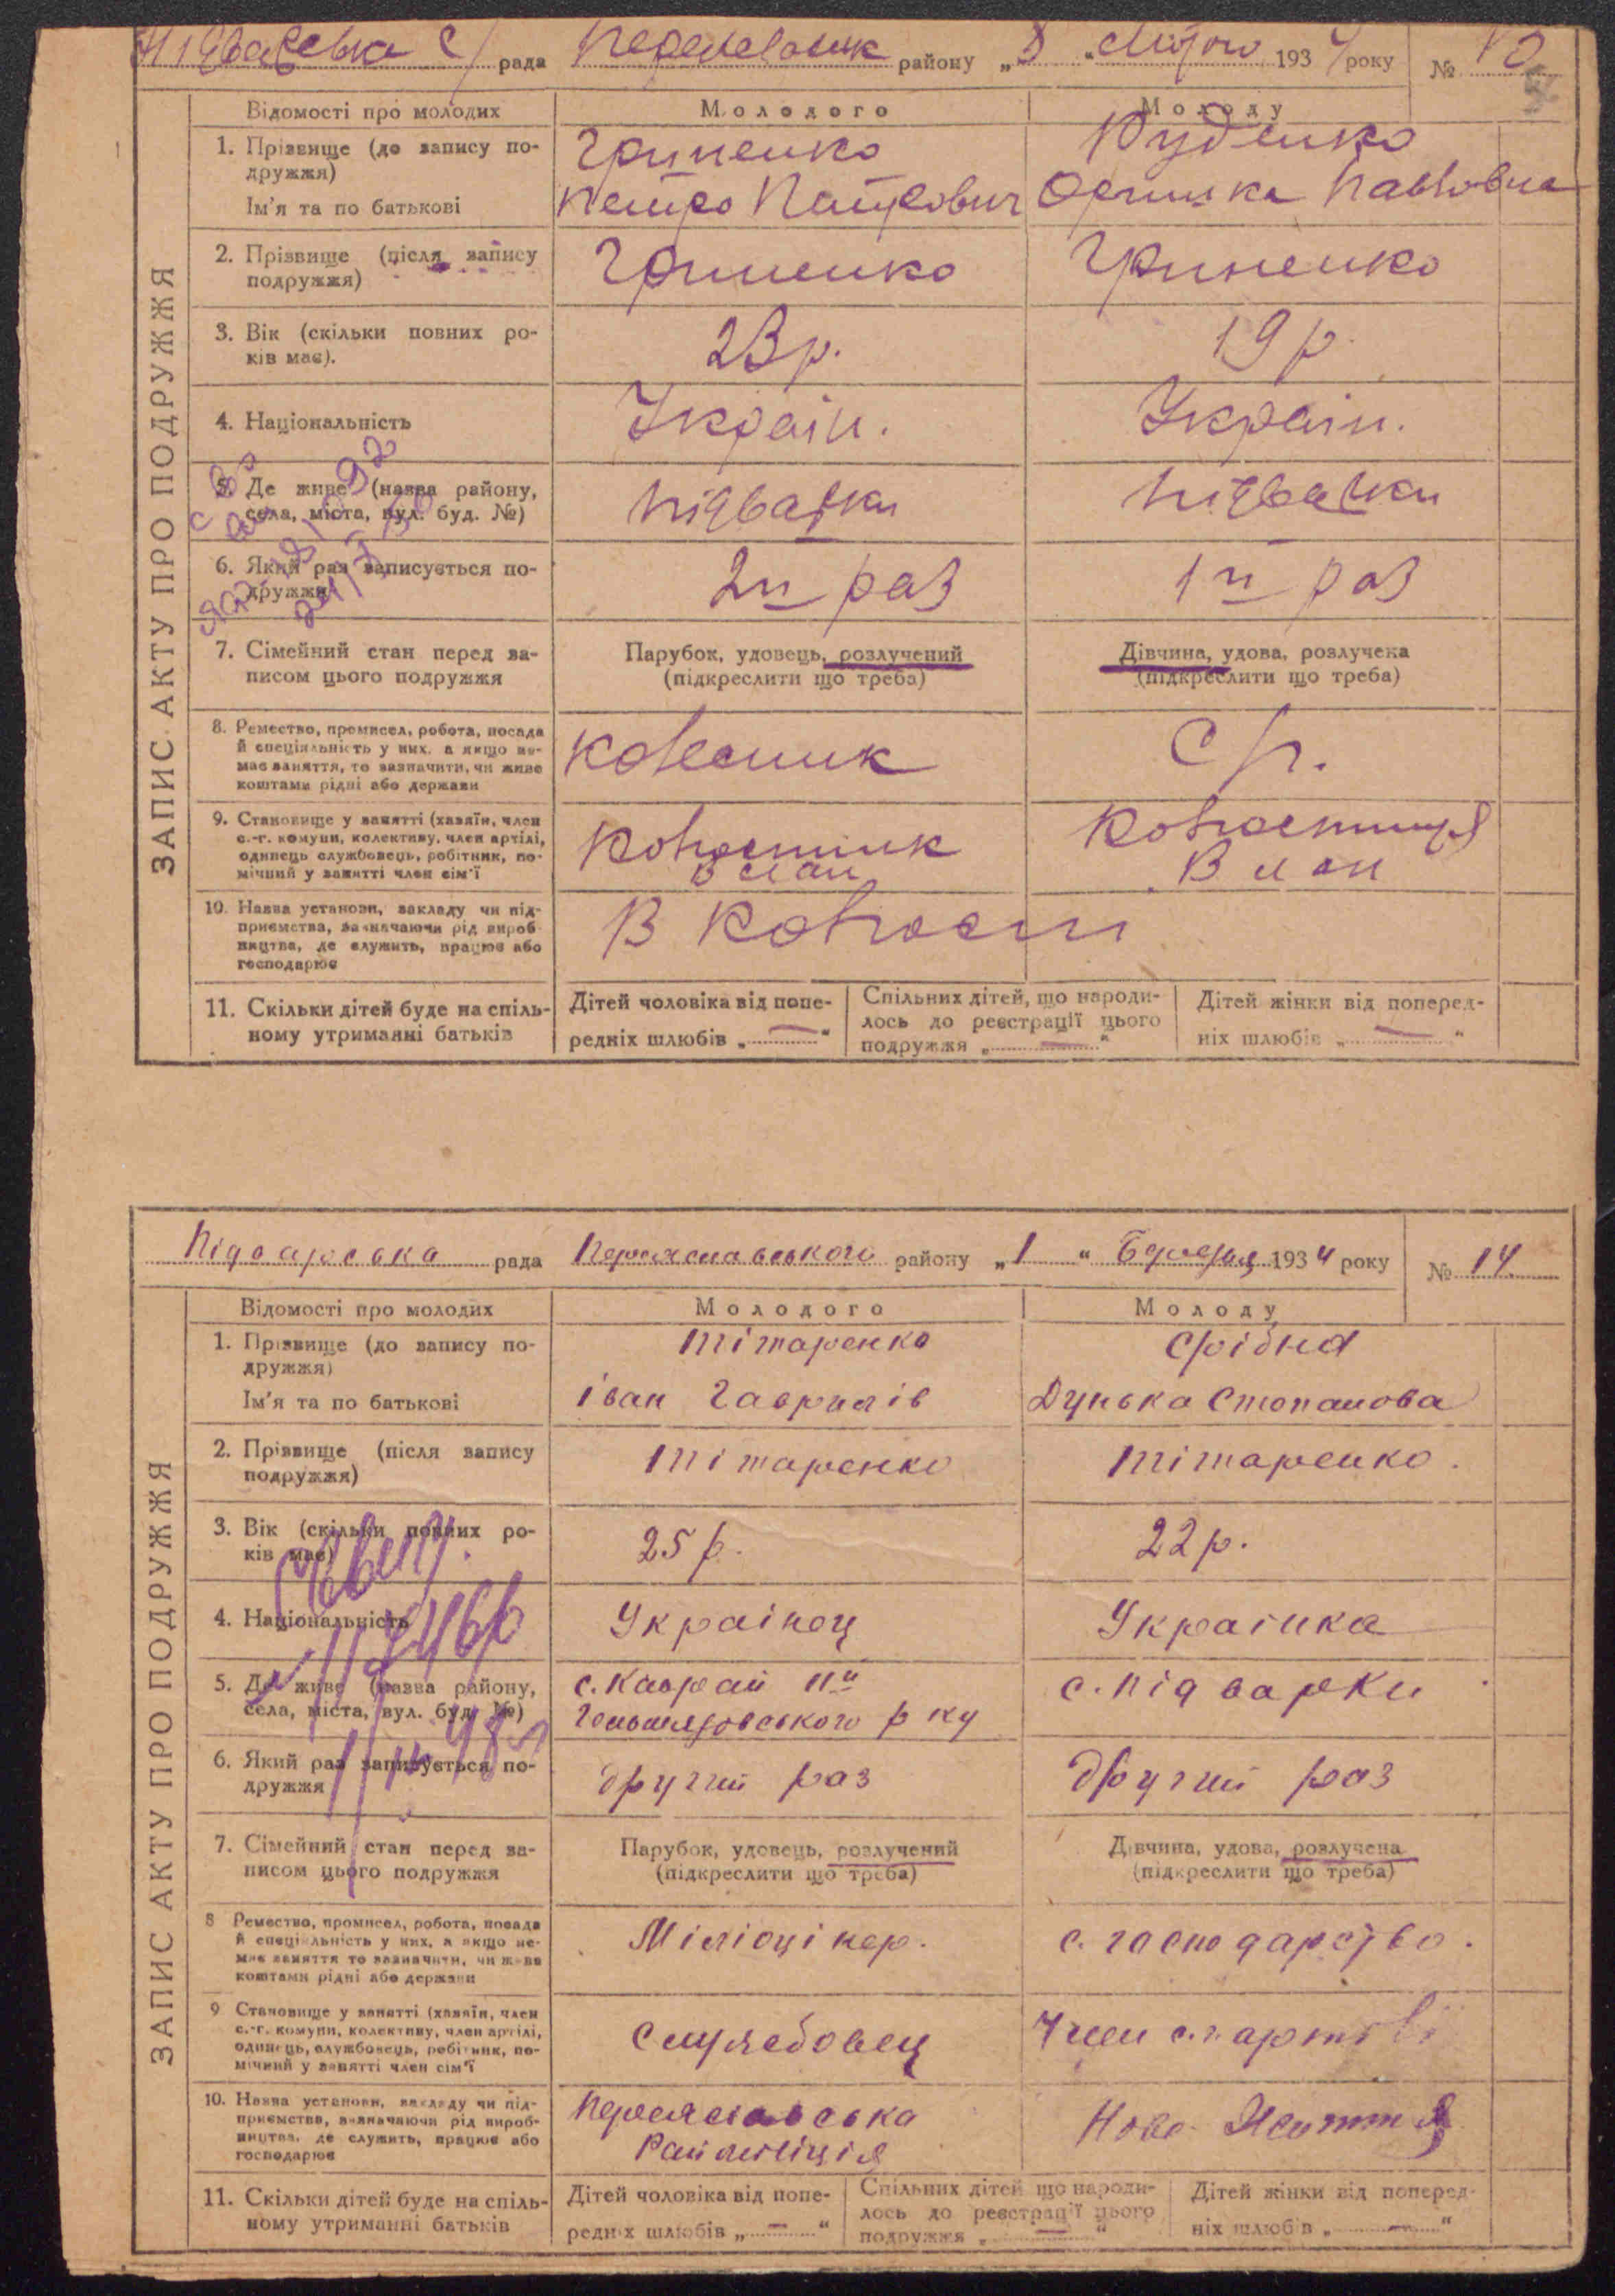 Підварська с/рада Переяславськ району „8“ Лютого 1934 року №
ЗАПИС АКТУ ПРО ПОДРУЖЖЯ
Відомості про молодих Молодого Молоду
1. Прізвище (до запису по-
дружжя) Гриненко Руденко
Ім'я та по батькові Петро Петрович Оришка Павловна
2. Прізвище (після запису
подружжя) Гриненко Гриненко
3. Вік (скільки повних ро-
ків має). 23 р. 19 р.
4. Національність Україн. Україн.
5. Де живе (назва району,
села, міста, вул. буд. №) Підварки Підварки
6. Який раз записується по-
дружжя 2й раз 1й раз
7. Сімейний стан перед за-
писом цього подружжя
Парубок, удовець, розлучений
(підкреслити що треба)
Дівчина, удова, розлучена
(підкреслити що треба)
8. Ремество, промисел, робота, посада
й спеціяльність у них, а якщо не-
має заняття, то зазначити, чи живе
коштами рідні або держави
Колесник С/г.
9. Становище у занятті (хазяїн, член
с.-г. комуни, колективу, член артілі,
одинець службовець, робітник, по-
мічний у занятті член сім'ї
Колгоспник Колгоспниця
10. Назва установи, закладу чи під-
приємства, зазначаючи рід вироб-
ництва, де служить, працює або
господарює
В Колгоспі
11. Скільки дітей буде на спіль-
ному утриманні батьків
Дітей чоловіка від попе-
редніх шлюбів „—“
Спільних дітей, що народи-
лось до реєстрації цього
подружжя „—“
Дітей жінки від поперед-
ніх шлюбів „—“
Підварська рада Переяславського району „1“ Березня 1934 року № 14
ЗАПИС АКТУ ПРО ПОДРУЖЖЯ
Відомості про молодих Молодого Молоду
1. Прізвище (до запису по-
дружжя) Тітаренко Срібна
Ім'я та по батькові Іван Гаврилів Дунька Степанова
2. Прізвище (після запису
подружжя) Тітаренко Тітаренко.
3. Вік (скільки повних ро-
ків має) 25 р. 22 р.
4. Національність Українец Українка
5. Де живе (назва району,
села, міста, вул. буд. №)
с. Каврай
Гельмязовського р-ну
с. Підварки
6. Який раз записується по-
дружжя другий раз другий раз
7. Сімейний стан перед за-
писом цього подружжя
Парубок, удовець, розлучений
(підкреслити що треба)
Дівчина, удова, розлучена
(підкреслити що треба)
8 Ремество, промисел, робота, посада
й спеціяльність у них, а якщо не-
має заняття то зазначити, чи живе
коштами рідні або держави
Міліціонер. с. господарство.
9 Становище у занятті (хазяїн, член
с.-г. комуни, колективу, член артілі,
одинець, службовець, робітник, по-
мічний у занятті член сім'ї
Службовец Член с.г. артілі
10. Назва установи, закладу чи під-
приємства, зазначаючи рід вироб-
ництва, де служить, працює або
господарює
Переяславська
Райміліція
Нове Життя
11. Скільки дітей буде на спіль-
ному утриманні батьків
Дітей чоловіка від попе-
редніх шлюбів „—“
Спільних дітей що народи-
лось до реєстрації цього
подружжя „—“
Дітей жінки від поперед-
ніх шлюбів „—“